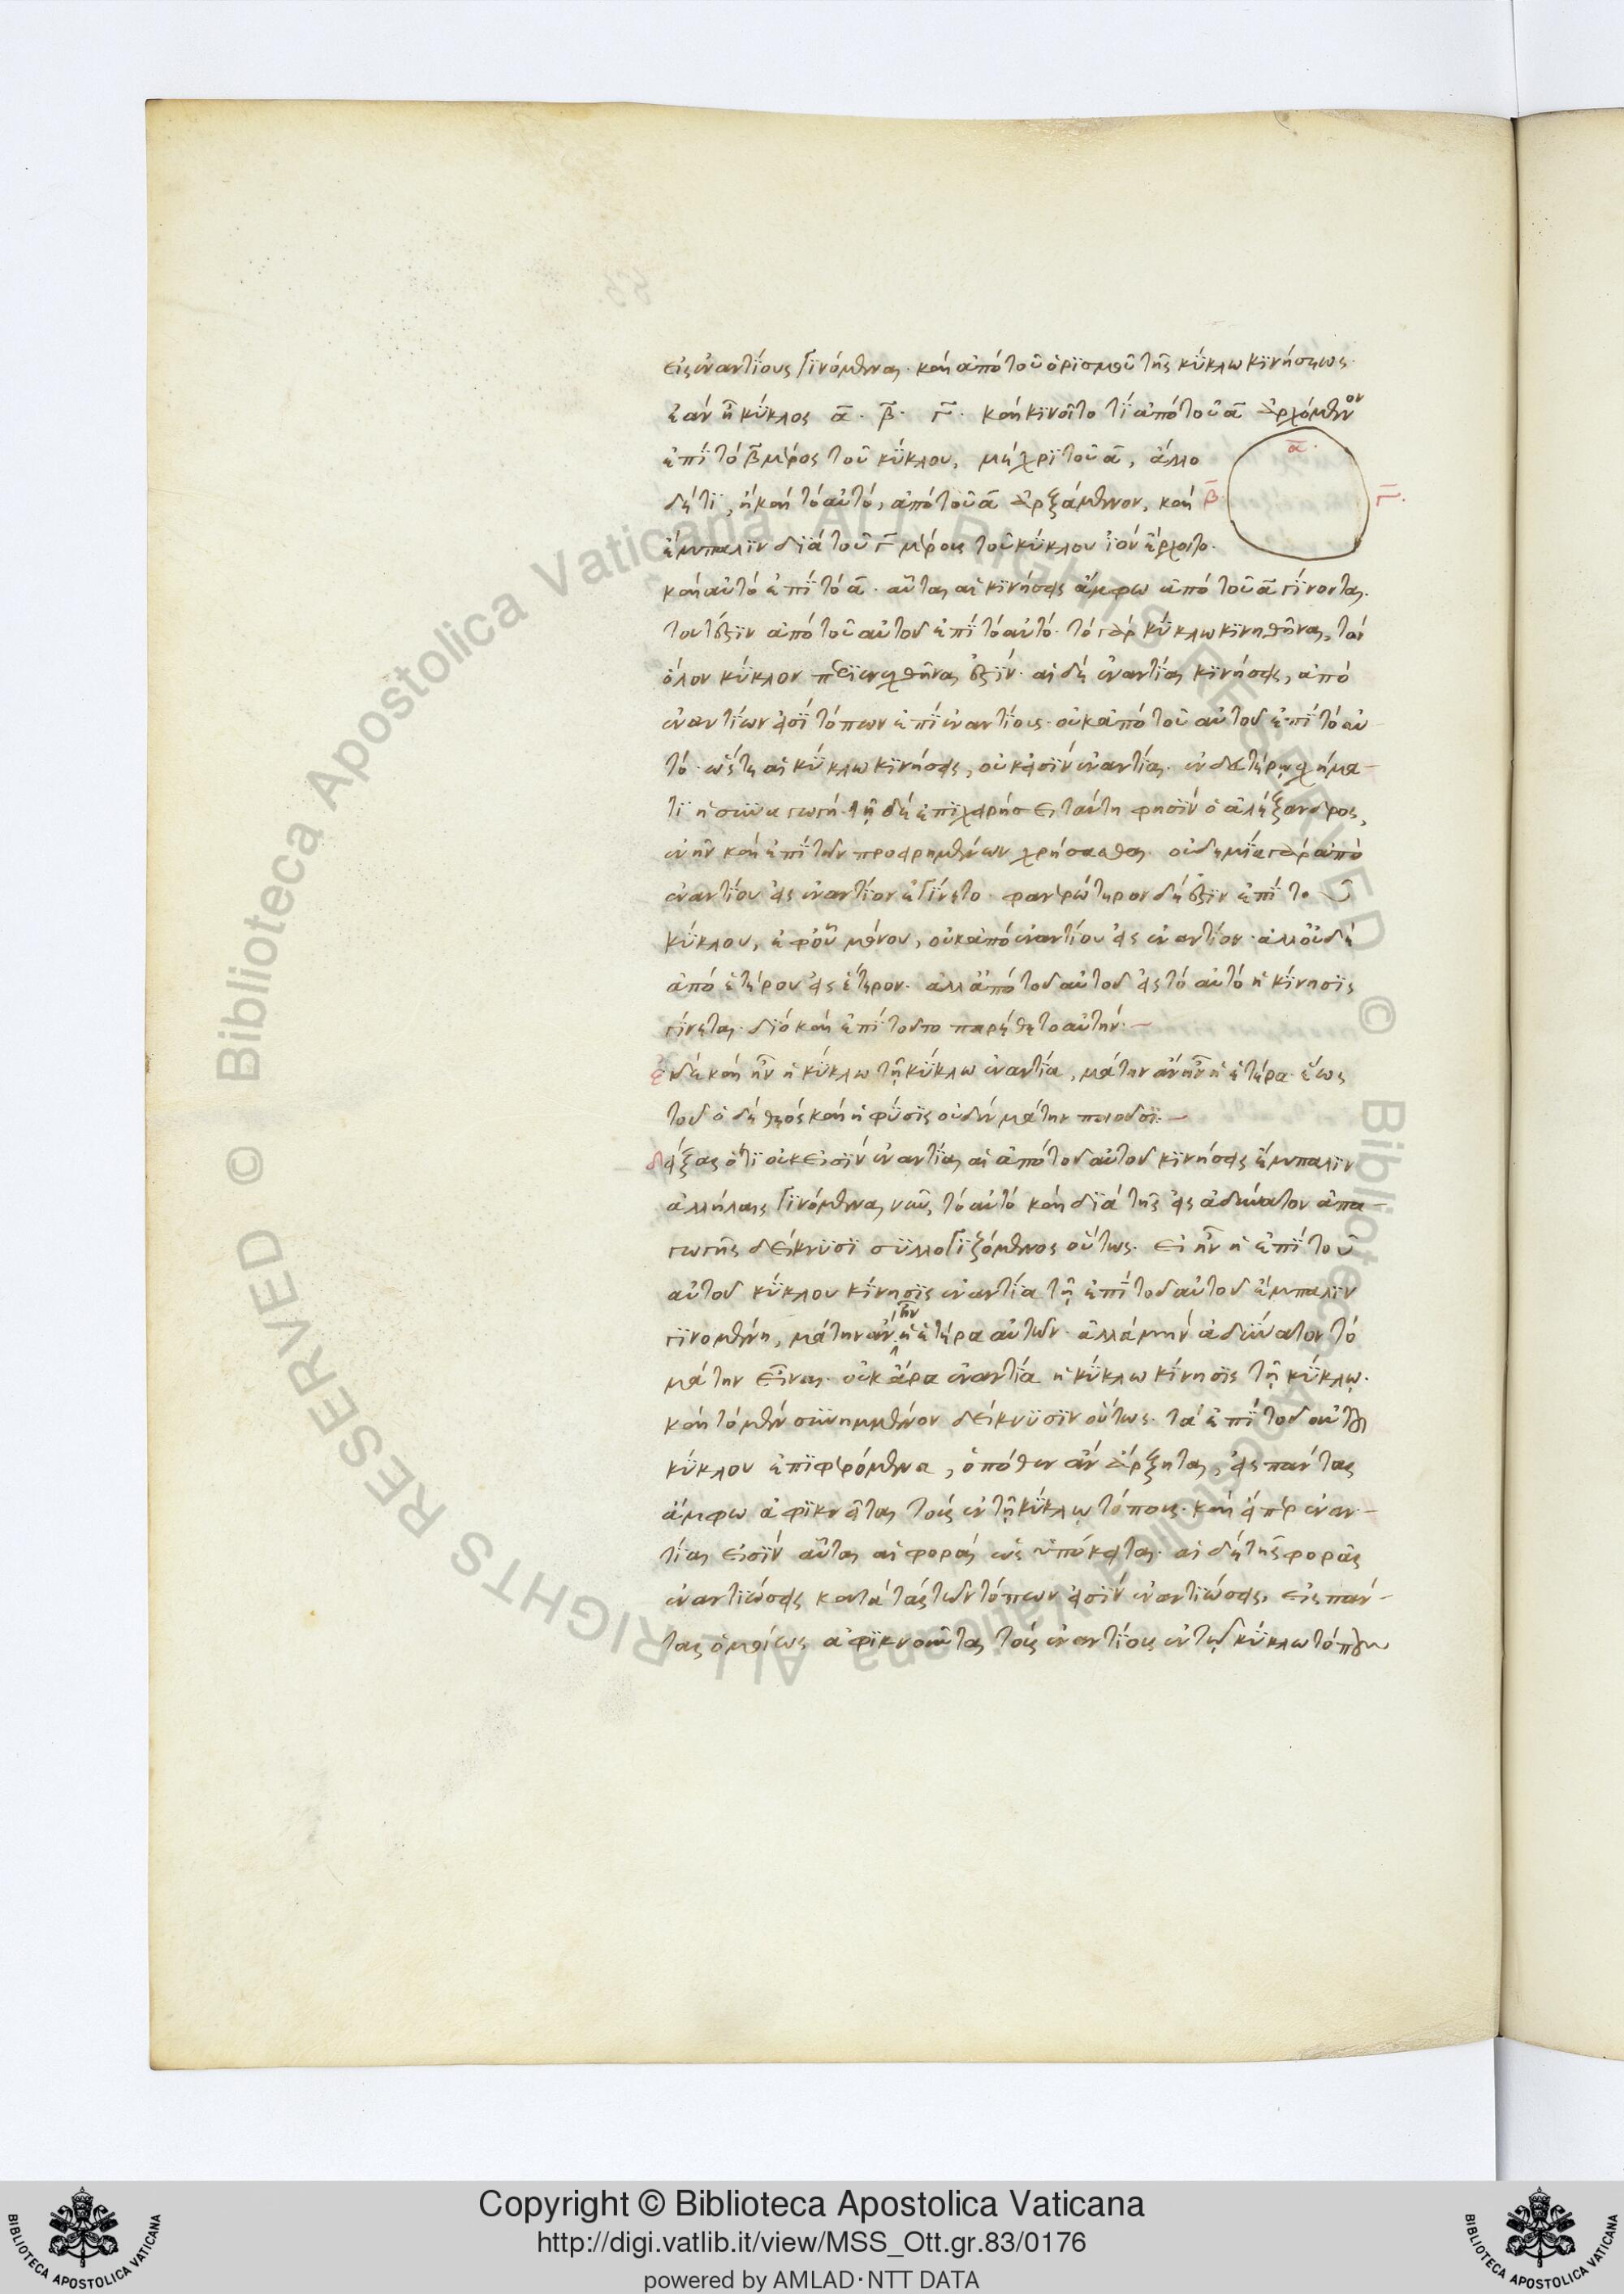 εἰς ἐναντίους γινόμεναι. καὶ ἀπὸ τοῦ ὁρισμοῦ τῆς κύκλω κινήσεως.
ἐὰν ἦ κύκλος α. β. γ. καὶ κινοῖτο τὶ ἀπὸ τοῦ α ἀρχόμενον
ἐπὶ τὸ β μέρος τοῦ κύκλου, μέχρι τοῦ α, ἄλλο
α.
δέ τι, ἢ καὶ τὸ αὐτό, ἀπὸ τοῦ α ἀρξάμενον, καὶ
β. γ.
ἔμπαλιν διὰ τοῦ γ μέρους τοῦ κύκλου ἰὸν ἔρχοιτο.
καὶ αὐτὸ ἐπὶ τὸ α. αὗται αἱ κινήσεις ἄμφω ἀπὸ τοῦ α γίνονται.
τουτέστιν ἀπὸ τοῦ αὐτοῦ ἐπὶ τὸ αὐτό. τὸ γὰρ κύκλω κινηθῆναι, τὸν
ὅλον κύκλον περιενεχθῆναι ἐστίν. αἱ δὲ ἐναντίαι κινήσεις, ἀπὸ
ἐναντίων εἰσὶ τόπων ἐπὶ ἐναντίους. οὐκ ἀπὸ τοῦ αὐτοῦ ἐπὶ τὸ αὐ
τό. ὥστε αἱ κύκλω κινήσεις, οὐκ εἰσὶν ἐναντίαι. ἐν δευτέρῳ σχήμα-
τι ἡ συναγωγή. τῇ δὲ ἐπιχειρήσει ταύτη φησὶν ὁ ἀλέξανδρος,
ἐνῆν καὶ ἐπὶ τῶν προειρημένων χρήσασθαι. οὐδεμία γὰρ ἀπὸ
ἐναντίου εἰς ἐναντίον ἐγίνετο. φανερώτερον δέ ἐστιν ἐπὶ τοῦ
κύκλου, ἐφ' οὗ μόνου, οὐκ ἀπὸ ἐναντίου εἰς ἐναντίον. ἀλλ' οὐδὲ
ἀπὸ ἑτέρου εἰς ἕτερον. ἀλλ' ἀπὸ τοῦ αὐτοῦ εἰς τὸ αὐτὸ ἡ κίνησις
γίνεται. διὸ καὶ ἐπὶ τούτου παρέθετο αὐτήν.-
εἰ δὲ καὶ ἦν ἡ κύκλω τῇ κύκλω ἐναντία, μάτην ἂν ἦν ἡ ἑτέρα. ἕως
τοῦ ὁ δὲ θεὸς καὶ ἡ φύσις οὐδὲν μάτην ποιοῦσι.-
δείξας ὅτι οὐκ εἰσὶν ἐναντίαι αἱ ἀπὸ τοῦ αὐτοῦ κινήσεις ἔμπαλιν
ἀλλήλαις γινόμεναι, νῦν, τὸ αὐτὸ καὶ διὰ τῆς εἰς ἀδύνατον ἀπα-
γωγῆς δείκνυσι συλλογιζόμενος οὕτως. εἰ ἦν ἡ ἐπὶ τοῦ
αὐτοῦ κύκλου κίνησις ἐναντία τῇ ἐπὶ τοῦ αὐτοῦ ἔμπαλιν
γινομένη, μάτην ἂν ἦν ἡ ἑτέρα αὐτῶν. ἀλλὰ μὴν ἀδύνατον τὸ
μάτην εἶναι. οὐκ ἄρα ἐναντία ἡ κύκλω κίνησις τῇ κύκλῳ.
καὶ τὸ μὲν συνημμένον δείκνυσιν οὕτως. τὰ ἐπὶ τοῦ αὐτοῦ
κύκλου ἐπιφερόμενα, ὁπόθεν ἂν ἄρξηται, εἰς πάντας
ἄμφω ἀφικνεῖται τοὺς ἐν τῇ κύκλῳ τόπους. καὶ εἴπερ ἐναν-
τίαι εἰσὶν αὗται αἱ φοραὶ ὡς ὑπόκειται. αἱ δὲ τῆς φορᾶς
ἐναντιώσεις κατὰ τὰς τῶν τόπων εἰσὶν ἐναντιώσεις, εἰς πάν-
τας ὁμοίως ἀφικνοῦται τοὺς ἐναντίους ἐν τῷ κύκλω τόπους
Copyright © Biblioteca Apostolica Vaticana
http://digi.vatlib.it/view/MSS_Ott.gr.83/0176
powered by AMLAD·NTT DATA